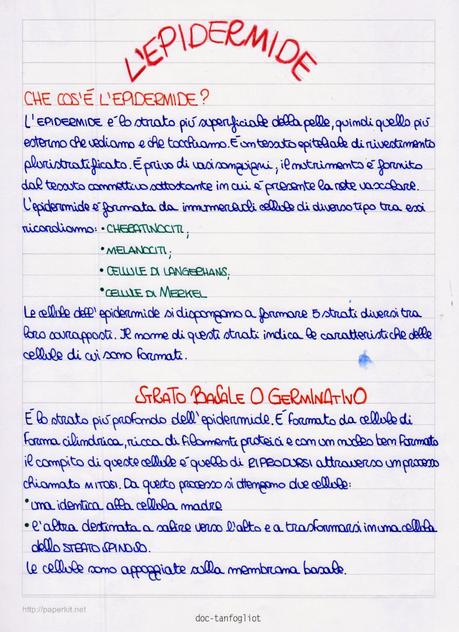 L'EPIDERMIDE
CHE COS'É L'EPIDERMIDE?
L'EPIDERMIDE è lo strato più superficiale della pelle, quindi quello più
esterno che vediamo e che tocchiamo. É un tessuto epiteliale di rivestimento
pluristratificato. É privo di vasi sanguigni, il nutrimento è fornito
dal tessuto connettivo sottostante in cui è presente la rete vascolare.
L'epidermide è formata da innumerevoli cellule di diverso tipo tra essi
ricordiamo: • CHERATINOCITI;
• MELANOCITI;
• CELLULE DI LANGERHANS;
• CELLULE DI MERKEL
Le cellule dell'epidermide si dispongono a formare 5 strati diversi tra
loro sovrapposti. Il nome di questi strati indica le caratteristiche delle
cellule di cui sono formati.
STRATO BASALE O GERMINATIVO
É lo strato più profondo dell'epidermide. É formato da cellule di
forma cilindrica, ricca di filamenti proteici e con un nucleo ben formato
il compito di queste cellule è quello di RIPRODURSI attraverso un processo
chiamato MITOSI. Da questo processo si ottengono due cellule:
• una identica alla cellula madre
• l'altra destinata a salire verso l'alto e a trasformarsi in una cellula
dello STRATO SPINOSO.
Le cellule sono appoggiate sulla membrana basale.
http://paperkit.net
doc-tanfogliot